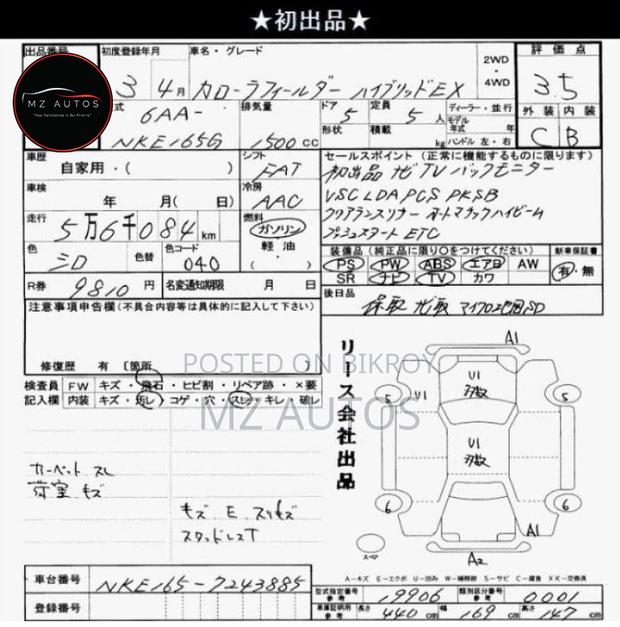 ★初出品★
出品番号 初度登録年月 車名・グレード 2WD・4WD 評価点
3 4月 カローラフィールダー ハイブリッドEX 3.5
MZ AUTOS
"Your Satisfaction Is Our Priority"
型式 6AA-NKE165G 排気量 1500cc ドア 5 定員 5人 ディーラー・並行 外装 内装
形状 積載 kg 年式 年 ハンドル 左・右 C B
車歴 自家用・( ) シフト FAT セールスポイント (正常に機能するものに限ります)
初出品 ナビTV バックモニター
車検 年 月( 日) 冷房 AAC VSC LDA PCS PKSB
クリアランスソナー オートマチックハイビーム
走行 5万6千084km 燃料 ガソリン・軽油・( ) プッシュスタート ETC
色 シロ 色替 カラーコード 040 装備品 (純正品に限り○をつけてください) 新車保証書
PS PW ABS エアB AW 有・無
SR ナビ TV カワ
R券 9810円 名変通知期限 月 日 後日品
注意事項申告欄(不具合内容等は具体的に記入して下さい) 保取 ナビ取 マイクロ地図SD
修復歴 有 [箇所
POSTED ON BIKROY
MZ AUTOS
検査員記入欄 FW キズ・飛石・ヒビ割・リペア跡・×要
内装 キズ・汚レ・コゲ・穴・スレ・キレ・破レ
リース会社出品
カーペット スレ
荷室 キズ
キズ E スリキズ
スタッドレスT
A1
U1
U1
5
5
U1
6
6
A1
A2
スペア
A-キズ E-エクボ U-凹み W-補修跡 S-サビ C-腐食 XX-交換済
車台番号 NKE165-7243885
型式指定番号 参考 19906 類別区分番号 参考 0001
登録番号
車庫証明用 参考 長さ 440cm 幅 169cm 高さ 147cm